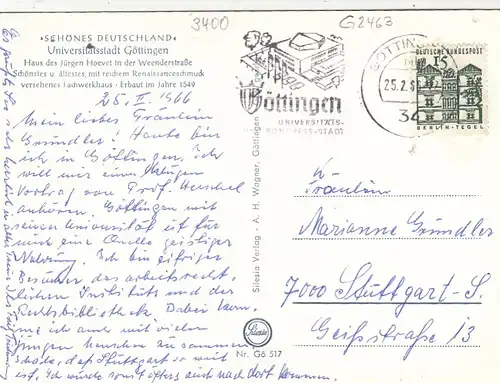 3400
G2463
»SCHÖNES DEUTSCHLAND«
Universitätsstadt Göttingen
Haus des Jürgen Hoevet in der Weenderstraße
Schönstes u. ältestes, mit reichem Renaissanceschmuck
versehenes Fachwerkhaus · Erbaut im Jahre 1549
25. II. 1966
Mein liebes Fräulein
Gründler! Heute bin
ich in Göttingen. Ich
will mir einen
Vortrag von Prof. Henschel
anhören. Göttingen mit
seiner Universität ist für
mich eine Quelle geistiger
Nahrung. Ich bin eifriger
Besucher des arbeitsrecht-
lichen Instituts und der
Rechtsbibliothek. Dabei kom-
me ich auch mit vielen
jungen Menschen zusammen.
Schade, daß Stuttgart so weit
ist. Ich würde sonst öfters auch nach dort kommen.
Es grüßt Sie sehr herzlich in alter
Silesia Verlag · A. H. Wagner, Göttingen
Silesia
Nr. Gö 517
Göttingen
UNIVERSITÄTS-
KONGRESS-STADT
GÖTTINGEN
25.2.6
34
DEUTSCHE BUNDESPOST
15
BERLIN-TEGEL
Fräulein
Marianne Gründler
7000 Stuttgart-S.
Geißstraße 13